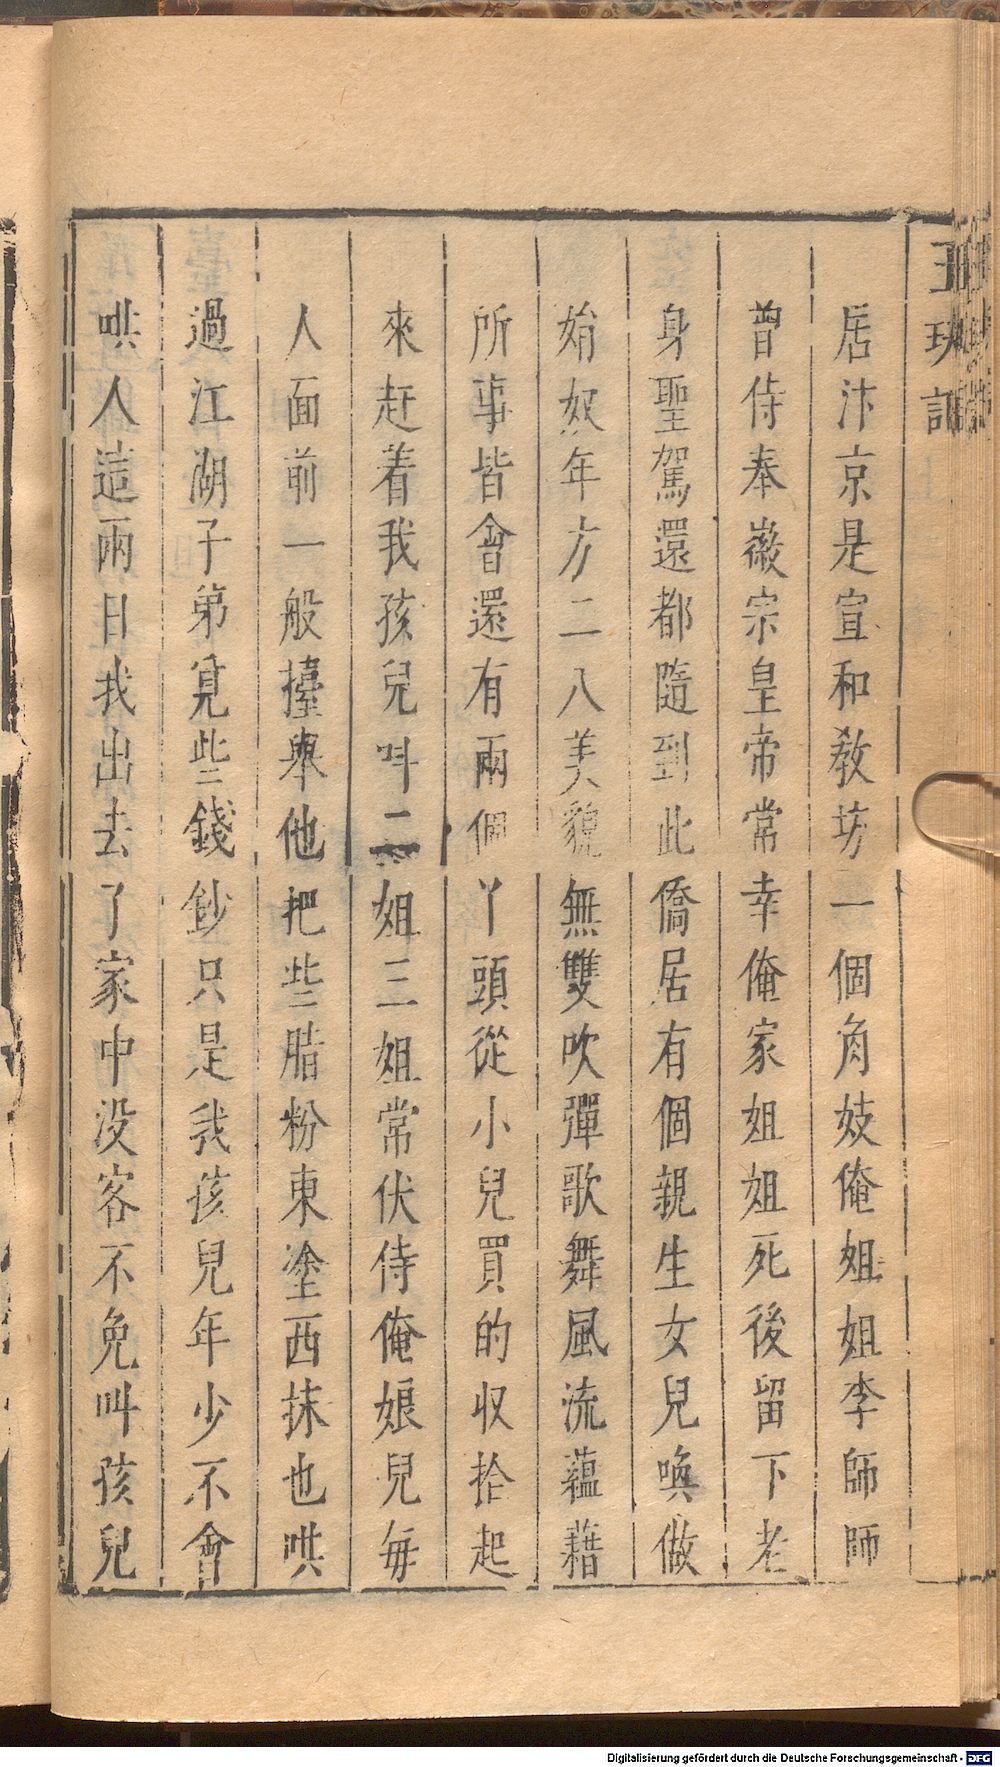 玉玦記
居汴京是宣和教坊一個角妓俺姐姐李師師
曾侍奉徽宗皇帝常幸俺家姐姐死後留下老
身聖駕還都隨到此僑居有個親生女兒喚做
娟奴年方二八美貌無雙吹彈歌舞風流蘊藉
所事皆會還有兩個丫頭從小兒買的収拾起
來赶着我孩兒呌二姐三姐常伏侍俺娘兒每
人面前一般擡舉他把些脂粉東塗西抹也哄
過江湖子弟覓些錢鈔只是我孩兒年少不會
哄人這兩日我出去了家中没客不免叫孩兒
Digitalisierung gefördert durch die Deutsche Forschungsgemeinschaft - DFG